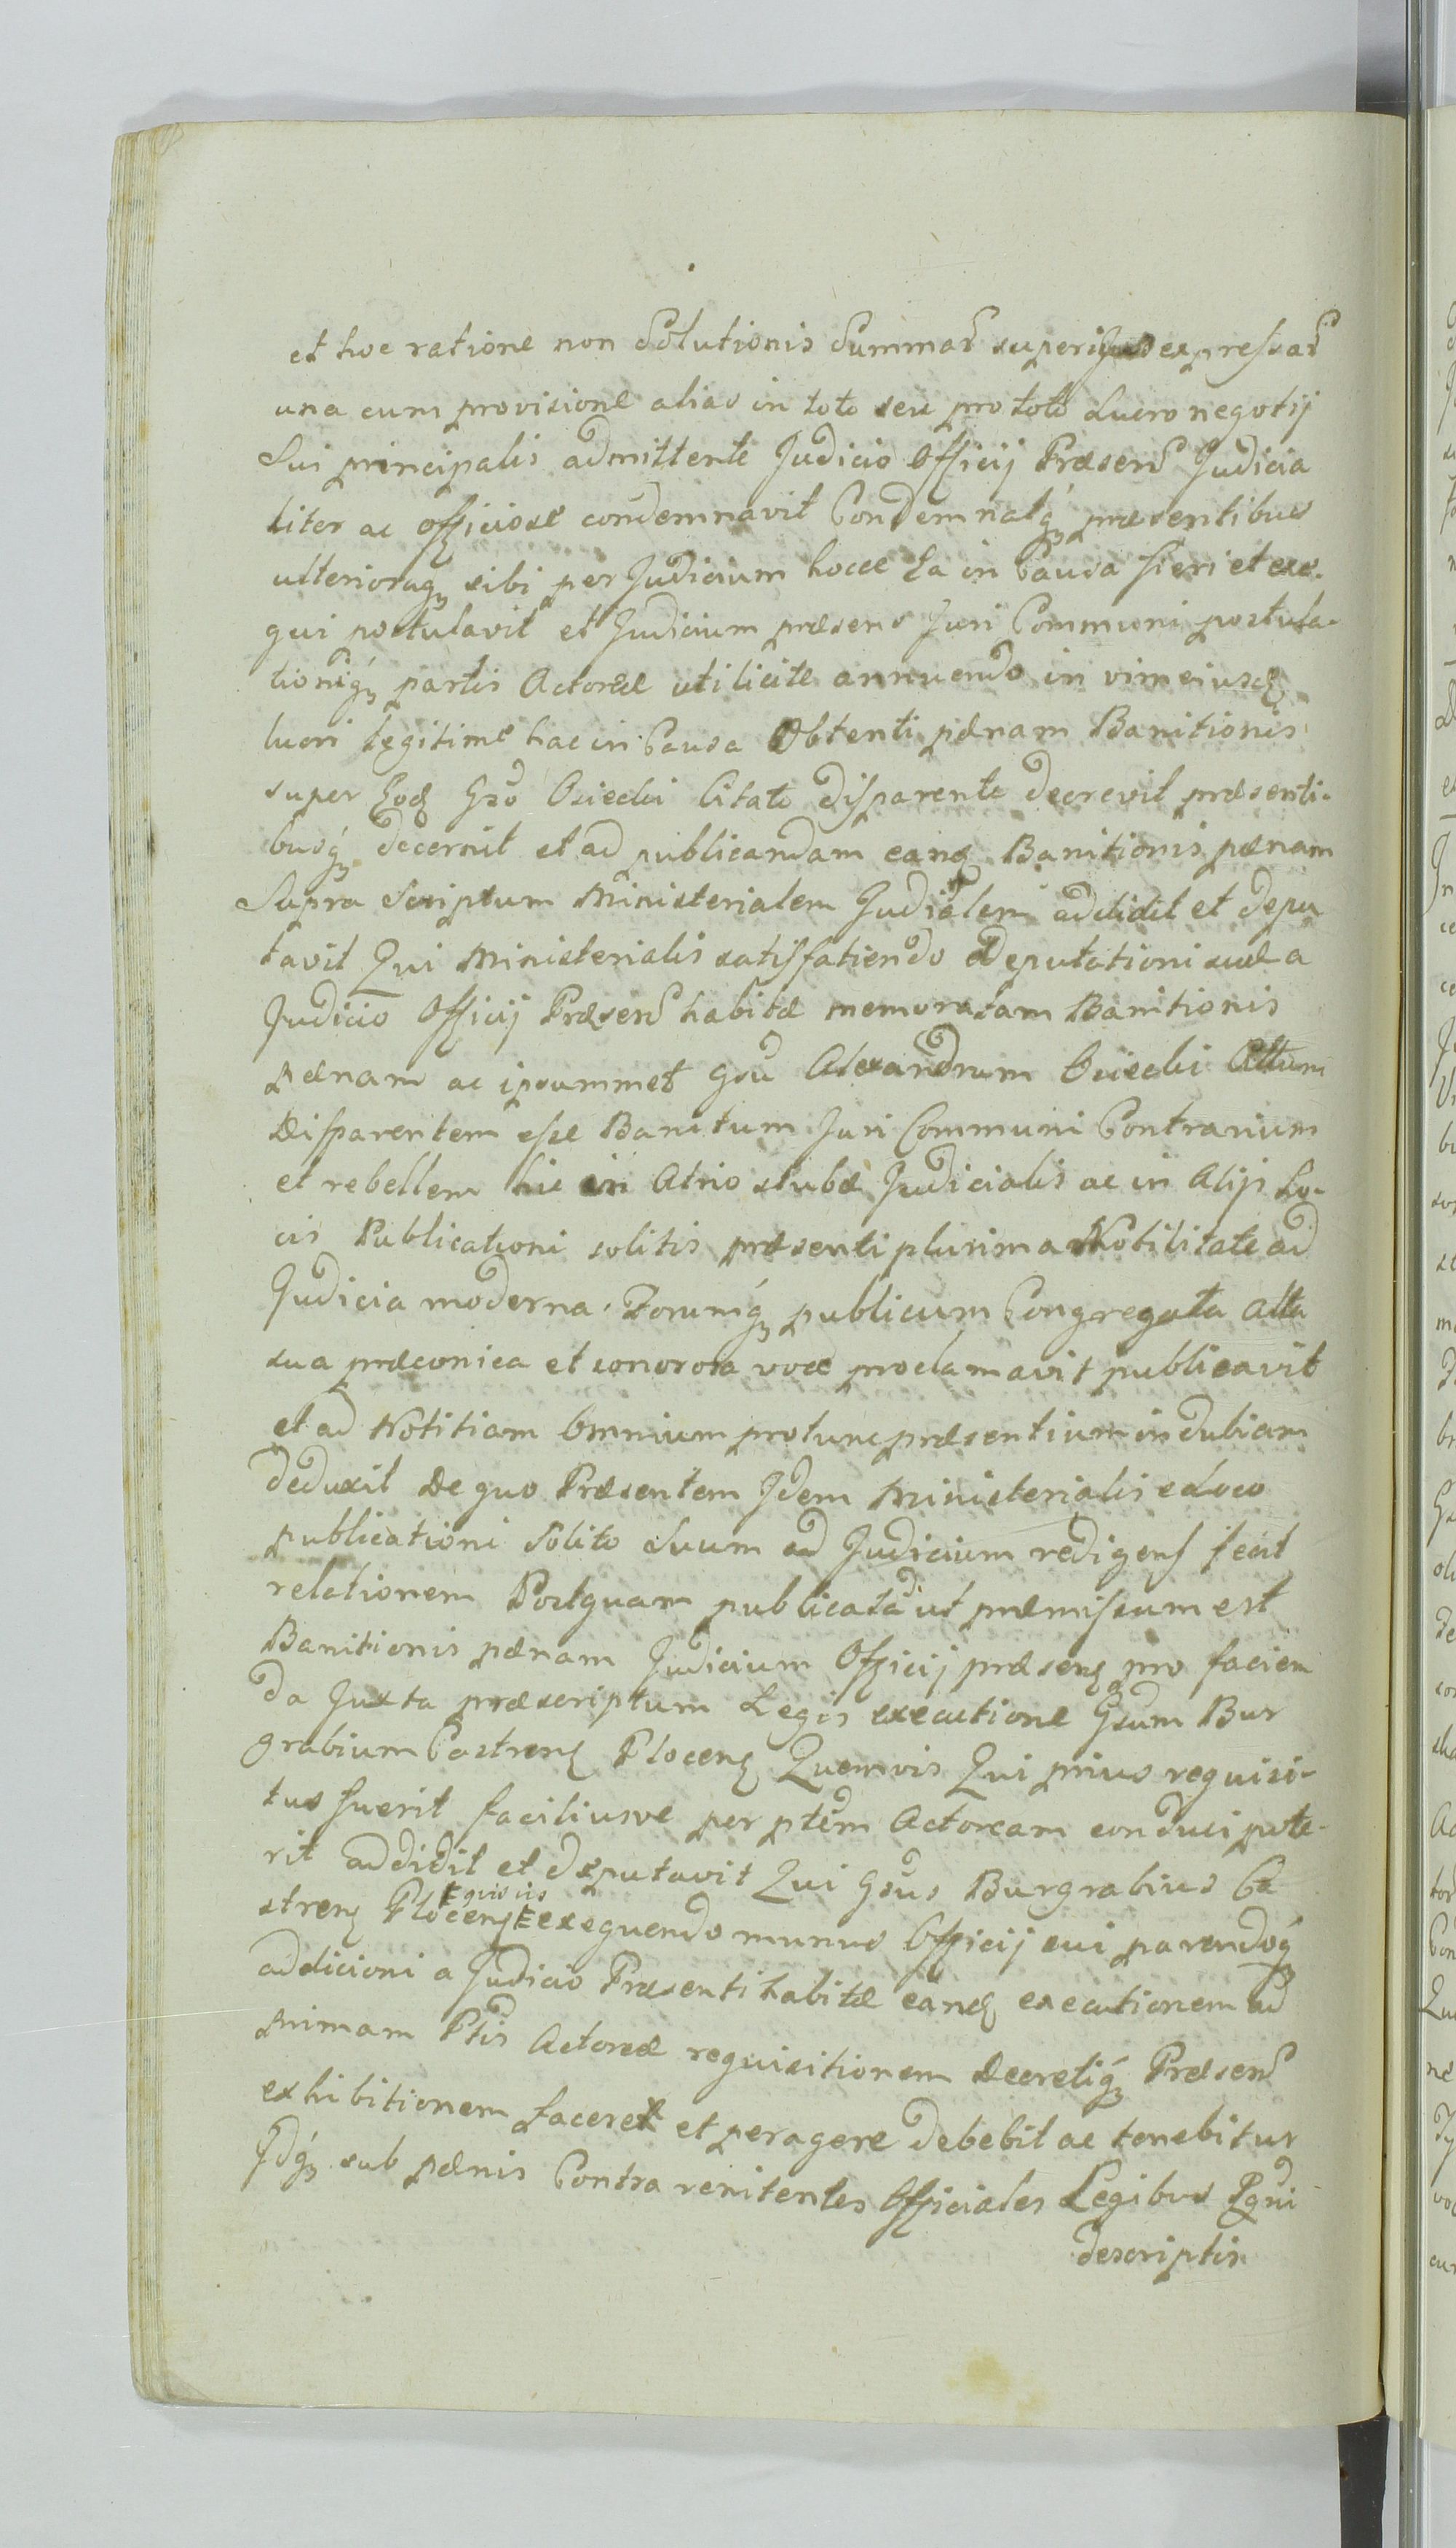 et hoc ratione non Solutionis Summar superius expressar
una cum provisione alias in toto seu pro toto Lucro negotij
Sui principalis admittente Judicio Officij Præsens Judicia
liter ac officiose condemnavit Condemnatq præsentibus
ulterioraq sibi per Judicium hocce Ea in Causa fieri et exe-
qui postulavit et Judicium præsens Juri Communi postula-
tioniq partis Actoreæ uti licite annuendo in vim eiusd
lucri legitime hac in Causa Obtenti pænam Banitionis
super Eod Gso Osiecki Citato disparente decrevit præsenti-
busq decernit et ad publicandam eand Banitionis pænam
Supra Scriptum Ministerialem Judialem addidit et depu
tavit Qui Ministerialis satisfatiendo Deputationi suæ a
Judicio Officij Præsens habitæ memoratam Banitionis
pænam ac ipsummet Gsu Alexandrum Osiecki Cittum
Disparentem esse Banitum Juri Communi Contrarium
et rebellem hic in Atrio stubæ Judicialis ac in Alijs Lo-
cis Publicationi solitis præsenti plurima Nobilitate ad
Judicia moderna Forumq publicum Congregata alta
sua præconica et sonorosa voce proclamavit publicavit
et ad Notitiam Omnium protunc præsentium indubiam
deduxit De quo Præsentem Jdem Ministerialis e Loco
publicationi Solito Suum ad Judicium redigens fecit
relationem Postquam publicata ut præmissum est
Banitionis pænam Judicium Officij præsens pro facien
da Juxta præscriptum Legis executione Gsum Bur
grabium Castrens Plocens Quemvis Qui prius requisi-
tus fuerit faciliusve per ptem Actoream conduci pote-
rit addidit et deputavit Qui Gsus Burgrabius Ca
strens Plocens exequendo munus Officij sui parendoq
addicioni a Judicio Præsenti habitæ eand executionem ad
primam Ptis Actoreæ requisitionem Decretiq Præsens
exhibitionem facere et peragere debebit ac tenebitur
Jdq sub pænis Contra renitentes Officiales Legibus Rgni
descriptis